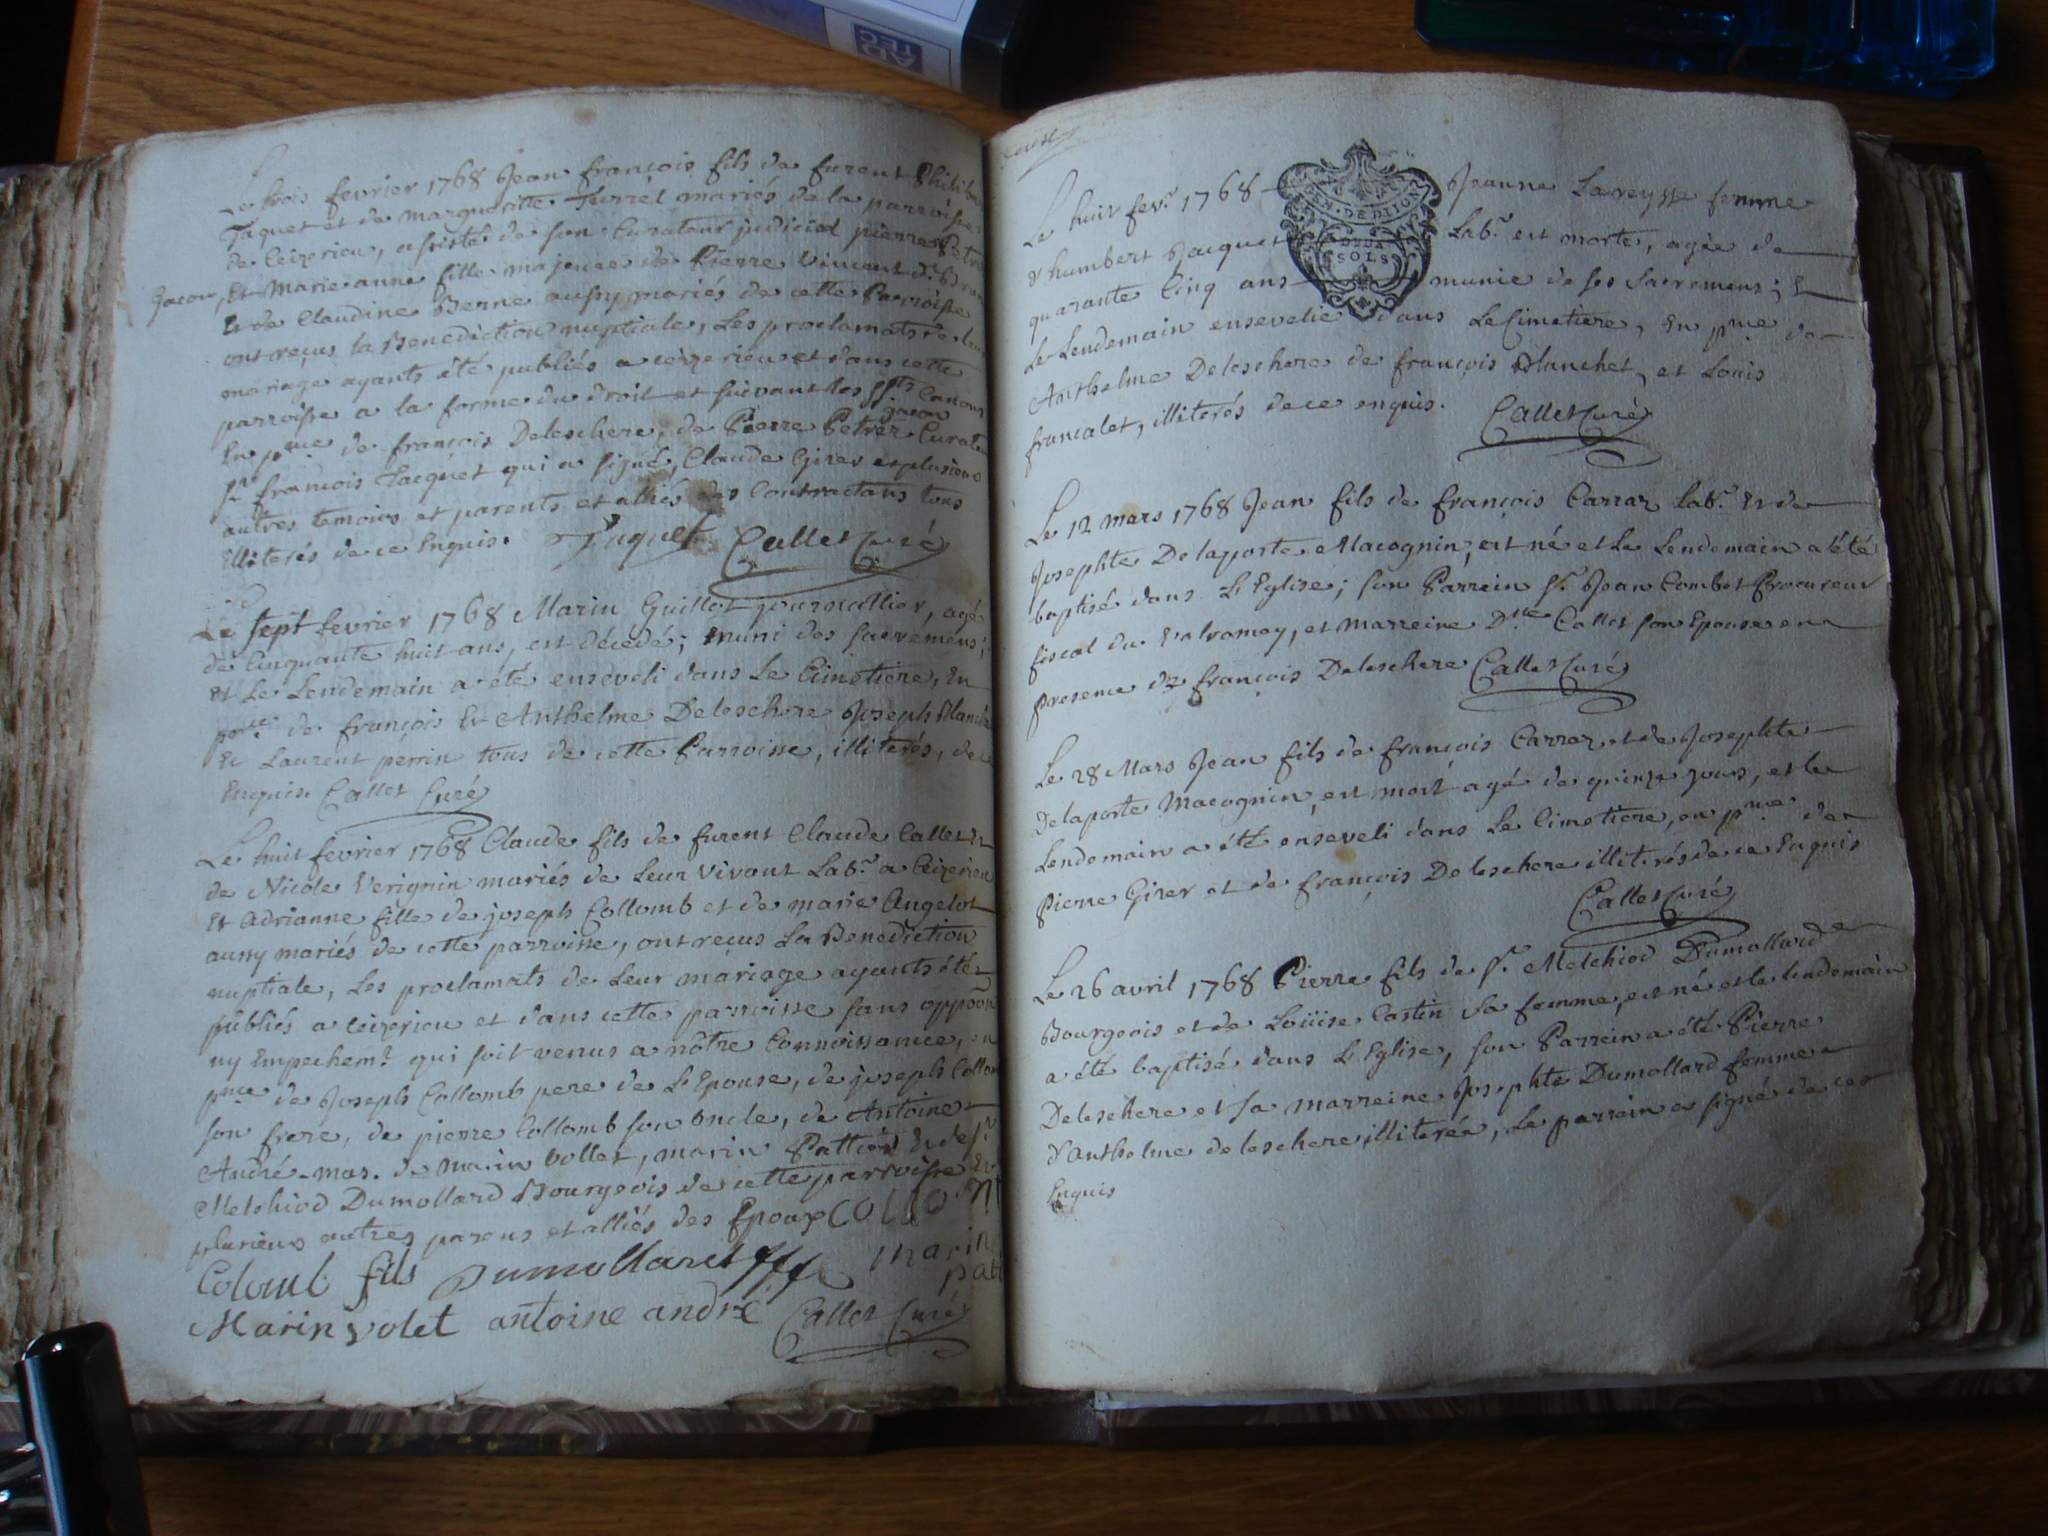 Le trois fevrier 1768 Jean françois fils de furent Philib
Jaquet et de marguerite Terret mariés de la parroisse
de Ceizerieu, assisté de son Curateur judiciel pierre Petre
Jacou, Et Marie anne fille majeure de Pierre Vincent
Et de Claudine Berne aussy mariés de cette Parroisse
ont reçus la Benediction nuptiale, Les proclamats de leur
mariage ayants été publiés a ceizerieu et dans cette
parroisse a la forme du droit et suivant les Sts Canons
jacou
En pnce de françois Deleschere, de Pierre Petrer Curate
Sr françois Jacquet qui a signé, Claude Girer et plusieurs
autres temoins et parents et alliés des Contractans tous
illiterés de ce Enquis. Jaquet Callet Curé
Le sept fevrier 1768 Marin Guillot journallier, agé
de Cinquante huit ans, est décedé; muni des sacremens;
et Le Lendemain a été enseveli dans Le Cimetiere, En
pnce de françois Et Anthelme Deleschere Joseph Blanch
Et Laurent perrin tous de cette Parroisse, illiterés, de ce
Enquis Callet Curé
Le huit fevrier 1768 Claude fils de furent Claude Callet Et
de Nicole Verignin mariés de Leur vivant Labr. a Ceizerieu
Et Adrianne fille de joseph Collomb et de marie Angelot
aussy mariés de cette parroisse, ont reçus La Benediction
nuptiale, Les proclamats de Leur mariage ayants été
publiés a Ceizerieu et dans cette parroisse sans oppoon
ny Empechemt. qui soit venus a nôtre Connoissance, en
pnce de Joseph Collomb pere de L'Epouse, de joseph Collom
son frere, de pierre Collomb son oncle, de Antoine
André-mas. de Marin vollet, marin Pattier Et de Sr.
Melchiod Dumollard Bourgeois de cette parroisse Et
plusieurs autres parens et alliés des Epoux COLLO
Colomb fils Dumollard marin
pat
Marin volet antoine andré Callet Curé
Le huit fevr. 1768
GEN. DE DIJON
DEUX
SOLS
Jeanne Lareysse femme
d'humbert Jacquet Labr. est morte, agée de
quarante Cinq ans munie de ses Sacremens; Et
Le Lendemain ensevelie dans Le Cimetiere, En pnce de
Anthelme Deleschere de françois Blanchet, et Louis
francalet, illiterés de ce enquis. Callet Curé
Le 12 mars 1768 Jean fils de françois Carraz Labr. Et de
Josephte Delaporte Macognin, est né et Le Lendemain a été
baptisé dans L'Eglise; son Parrein Sr. Jean Combet Procureur
fiscal du Valromey, et marreine Dlle Callet son Epouse en
presence de françois Deleschere Callet Curé
Le 28 Mars Jean fils de françois Carraz et de Josephte
Delaporte Macognin, est mort agé de quinze jours, et le
Lendemain a été enseveli dans Le Cimetiere, en pnce de
Pierre Girer et de françois Deleschere illiterés de ce Enquis
Callet Curé
Le 26 avril 1768 Pierre fils de Sr. Melchiod Dumollard
Bourgeois et de Loüise Castin sa femme, est né et le lendemain
a été baptisé dans L'Eglise, son Parrein a été Pierre
Deleschere et sa marreine Josephte Dumollard femme
d'Anthelme deleschere illiterée, Le parrein a signé de ce
Enquis
AD
TEC